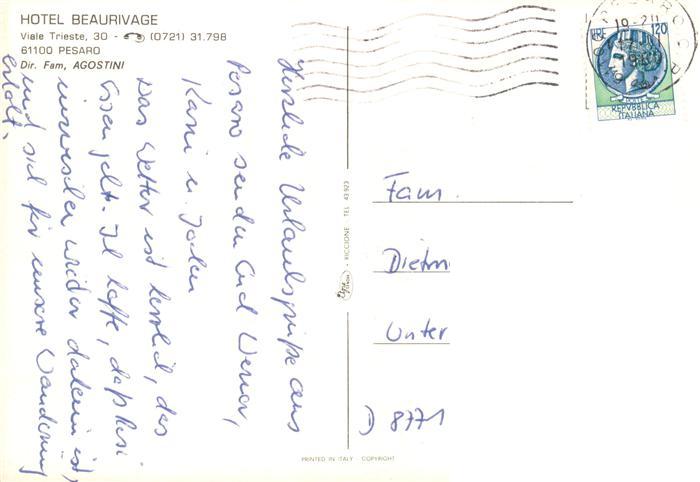 HOTEL BEAURIVAGE
Viale Trieste, 30 - (0721) 31.798
61100 PESARO
Dir. Fam, AGOSTINI
Herzliche Urlaubsgrüße aus
Pesaro senden Euch Werner,
Karin u.
Das Wetter ist herrlich, das
Essen geht. Ich hoffe, daß
inzwischen wieder daheim ist,
und sich für unsere Wanderung
erholt.
LIRE 120
REPVBBLICA
ITALIANA
RICCIONE TEL 43.923
Fam.
Unter
D 8771
PRINTED IN ITALY - COPYRIGHT